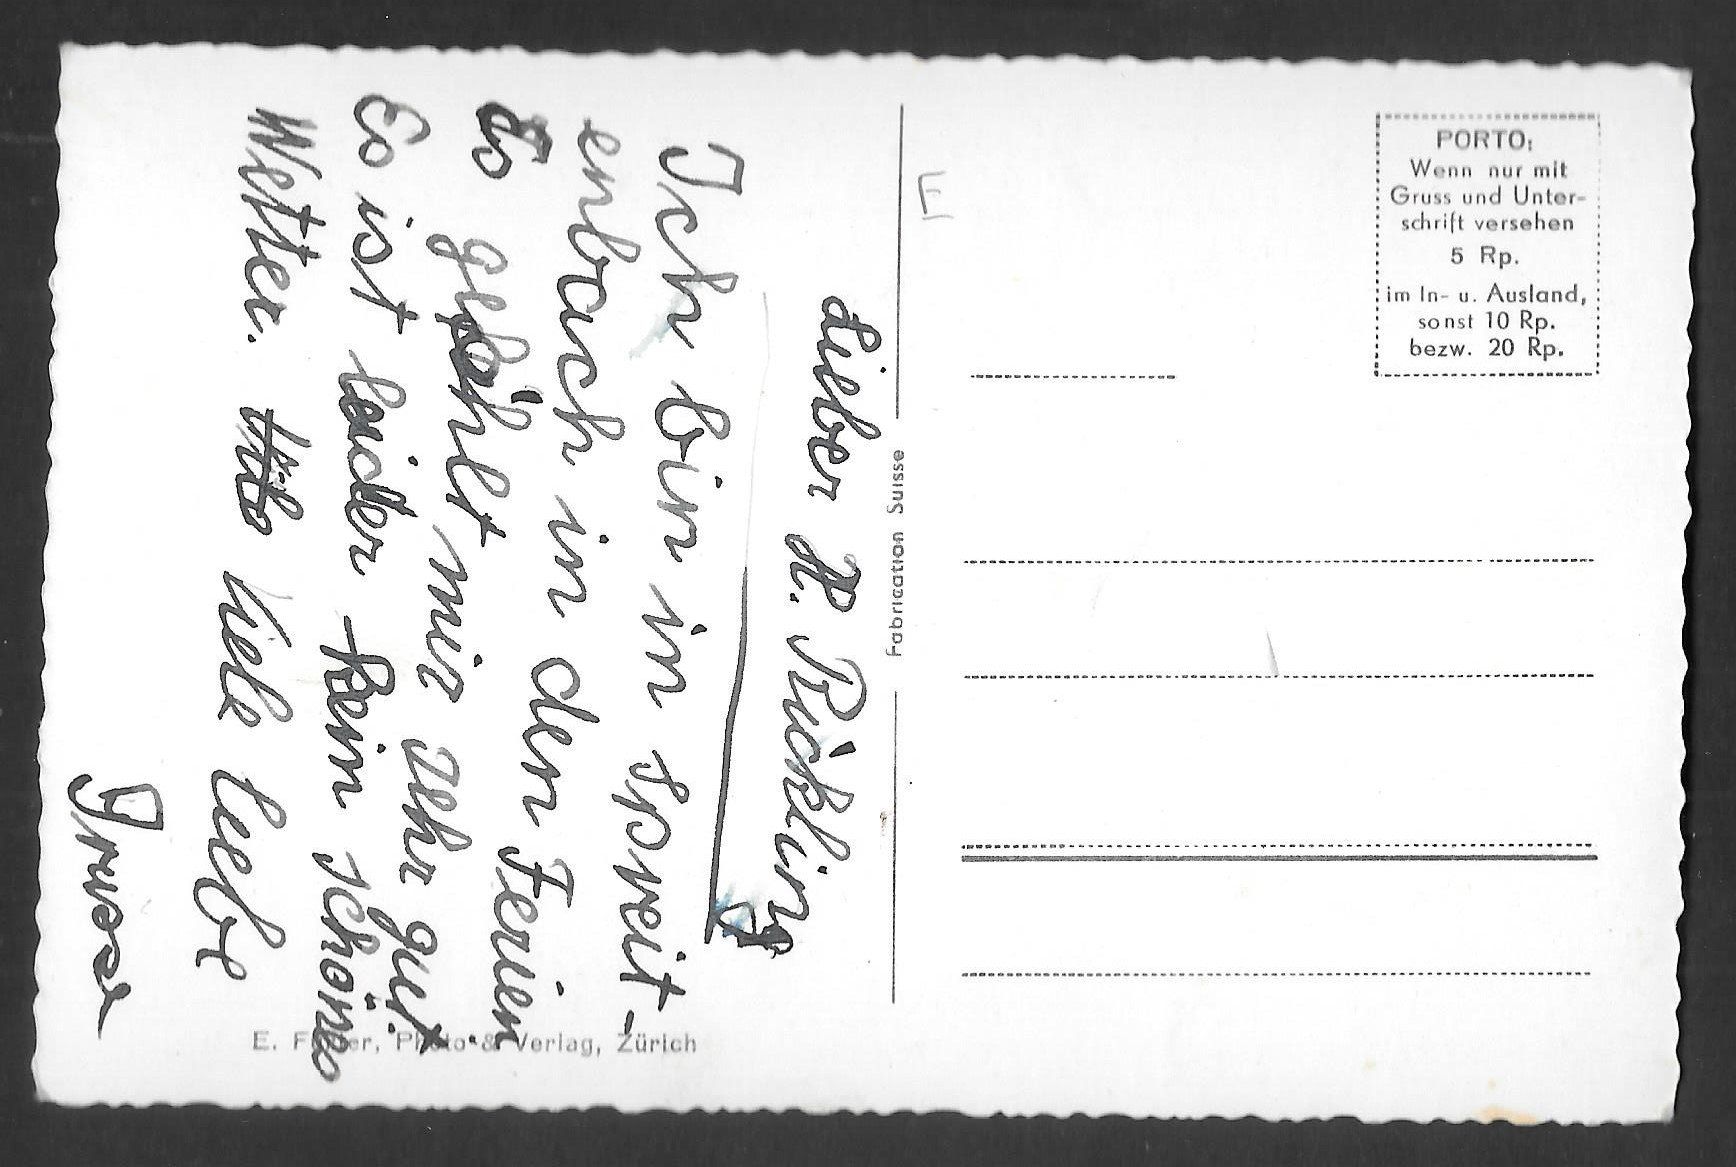 Lieber H. Rückling
Ich bin in speit-
enbach in den Ferien
Es gefählt mir sehr gut.
Es ist leider kein schönes
Wetter. viele liebe
Grüsse
E
Fabrication Suisse
PORTO:
Wenn nur mit
Gruss und Unter-
schrift versehen
5 Rp.
im In- u. Ausland,
sonst 10 Rp.
bezw. 20 Rp.
E. Photo & Verlag, Zürich